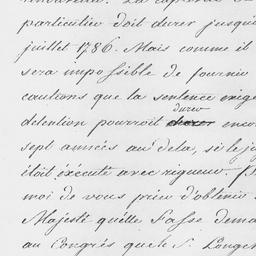 particulier doit durer jusqu'
juillet 1786. Mais comme il
sera impossible de fournir
cautions que la sentence exige
durer
detention pourroit durer enco
sept années au dela, si le jo
étoit éxécuté avec rigueur
moi de vous prier d'obtenir
Majesté qu'elle Fasse dema
au Congrés que le S. Longch